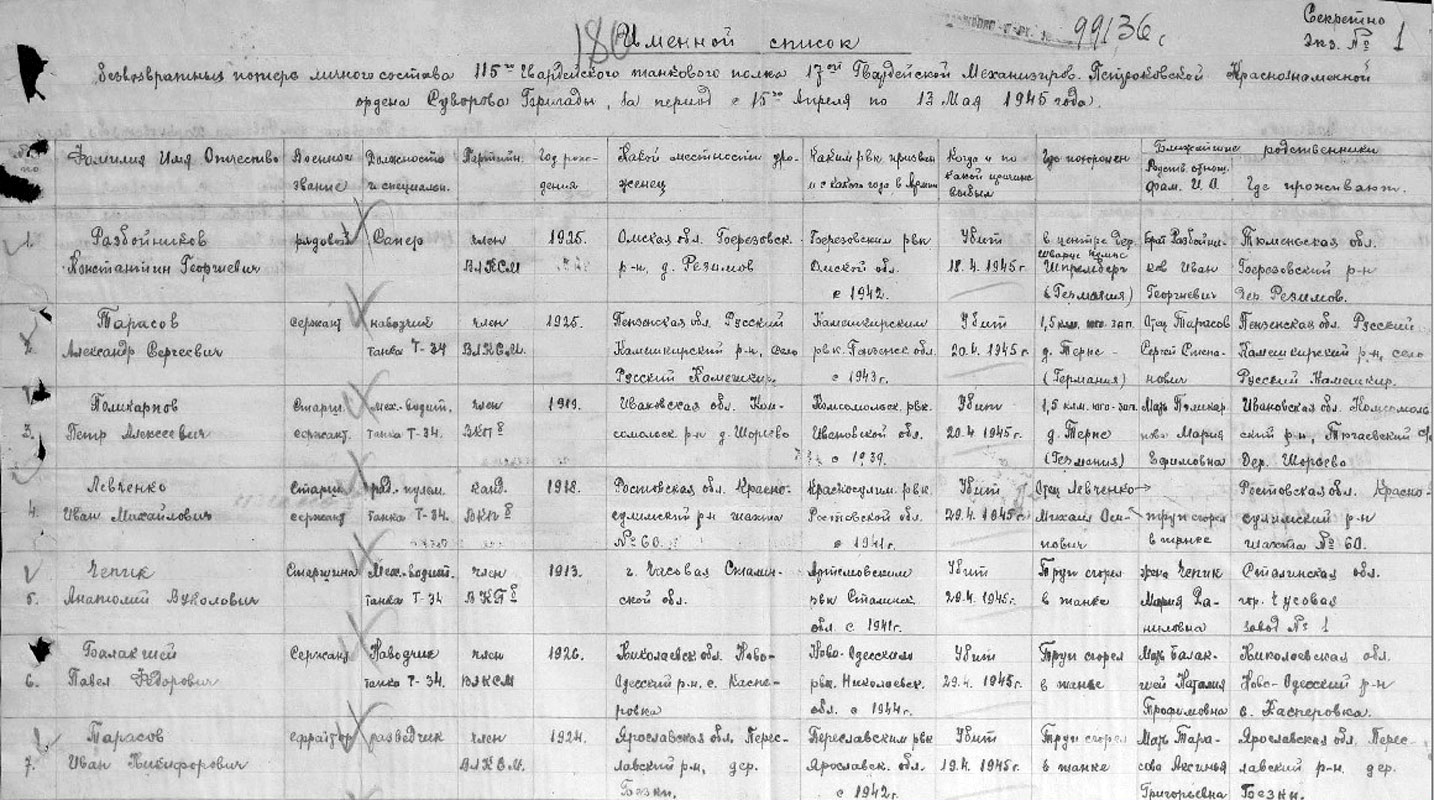 Секретно
Экз. № 1
180
99136с
Именной список
безвозвратных потерь личного состава 115го Гвардейского танкового полка 17ой Гвардейской Механизиров. Петроковской Краснознаменной
ордена Суворова Бригады, за период с 15го Апреля по 13 Мая 1945 года.
Фамилия Имя Отчество
Военное звание
Должность и специальн.
Партийн.
Год рождения
Какой местности уроженец
Каким рвк призван и с какого года в Армии
Когда и по какой причине выбыл
Где похоронен
Ближайшие родственники
Родств. отнош. фам. И. О.
Где проживают.
1.
Разбойников
Константин Георгиевич
рядовой
Сапер
член
ВЛКСМ
1925.
Омская обл. Березовск.
р-н, д. Резимов
Березовским рвк
Омской обл.
с 1942.
Убит
18.4.1945г
в центре дер.
Шпремберг
(Германия)
Брат Разбойни-
ков Иван
Георгиевич
Тюменьская обл.
Березовский р-н
дер. Резимов.
2.
Тарасов
Александр Сергеевич
сержант
наводчик
танка Т-34
член
ВЛКСМ.
1925.
Пензенская обл. Русский
Камешкирский р-н, село
Русский Камешкир.
Камешкирским
рвк. Пензенск. обл.
с 1943г.
Убит
20.4.1945г
1,5 клм. юго-зап.
д. Терне -
(Германия)
Отец Тарасов
Сергей Степа-
нович
Пензенская обл. Русский
Камешкирский р-н, село
Русский Камешкир.
3.
Поликарпов
Петр Алексеевич
Старш.
сержант.
Мех.-водит.
танка Т-34.
член
ВКПб
1919.
Ивановская обл. Ком-
сомольск. р-н д. Шорьево
Комсомольск. рвк.
Ивановской обл.
с 1939.
Убит
20.4.1945г.
1,5 клм. юго-зап.
д. Терне
(Германия)
Мать Поликар-
пова Мария
Ефимовна
Ивановская обл. Комсомоль
ский р-н,
Дер. Шорьево
4.
Левченко
Иван Михайлович
Старш.
сержант
рад.-пулем.
танка Т-34.
канд.
ВКПб
1918.
Ростовская обл. Красно-
сулимский р-н шахта
№ 60.
Красносулим. рвк
Ростовской обл.
с 1941г.
Убит
29.4.1945г
Отец Левченко
Михаил Оси-
пович
труп сгорел
в танке
Ростовская обл. Красно-
сулимский р-н
шахта № 60.
5.
Чепик
Анатолий Вуколович
Старшина
Мех.-водит.
танка Т-34
член
ВКПб
1913.
г. Часовая Сталин-
ской обл.
Артемовским
рвк Сталинск.
обл. с 1941г.
Убит
29.4.1945г.
Труп сгорел
в танке
жена Чепик
Мария Да-
ниловна
Сталинская обл.
гор. Чусовая
завод № 1
6.
Балакший
Павел Федорович
Сержант
Наводчик
танка Т-34.
член
ВЛКСМ
1926.
Николаевск. обл. Ново-
Одесский р-н. с. Каспе-
ровка
Ново-Одесским
рвк. Николаевск.
обл. с 1944г.
Убит
29.4.1945г
Труп сгорел
в танке
Мать Балак-
шей Наталия
Трофимовна
Николаевская обл.
Ново-Одесский р-н
с. Касперовка.
7.
Тарасов
Иван Никифорович
ефрайтор
разведчик
член
ВЛКСМ.
1924.
Ярославская обл. Перес-
лавский р-н, дер.
Переславским рвк
Ярославск. обл.
с 1942г.
Убит
19.4.1945г
Труп сгорел
в танке
Мать Тара-
сова Аксинья
Григорьевна
Ярославская обл. Перес-
лавский р-н. дер.